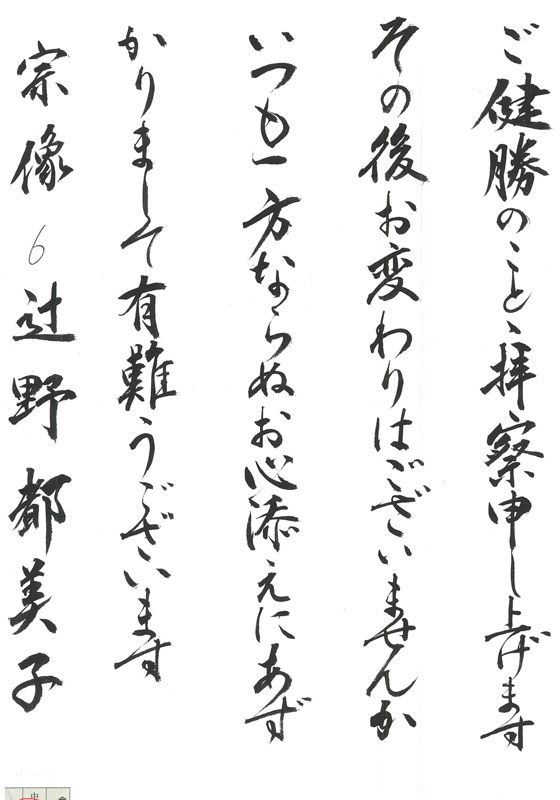 ご健勝のことゝ拝察申し上げます
その後お変わりはございませんか
いつも一方ならぬお心添えにあず
かりまして有難うございます
宗像 6 辻野都美子